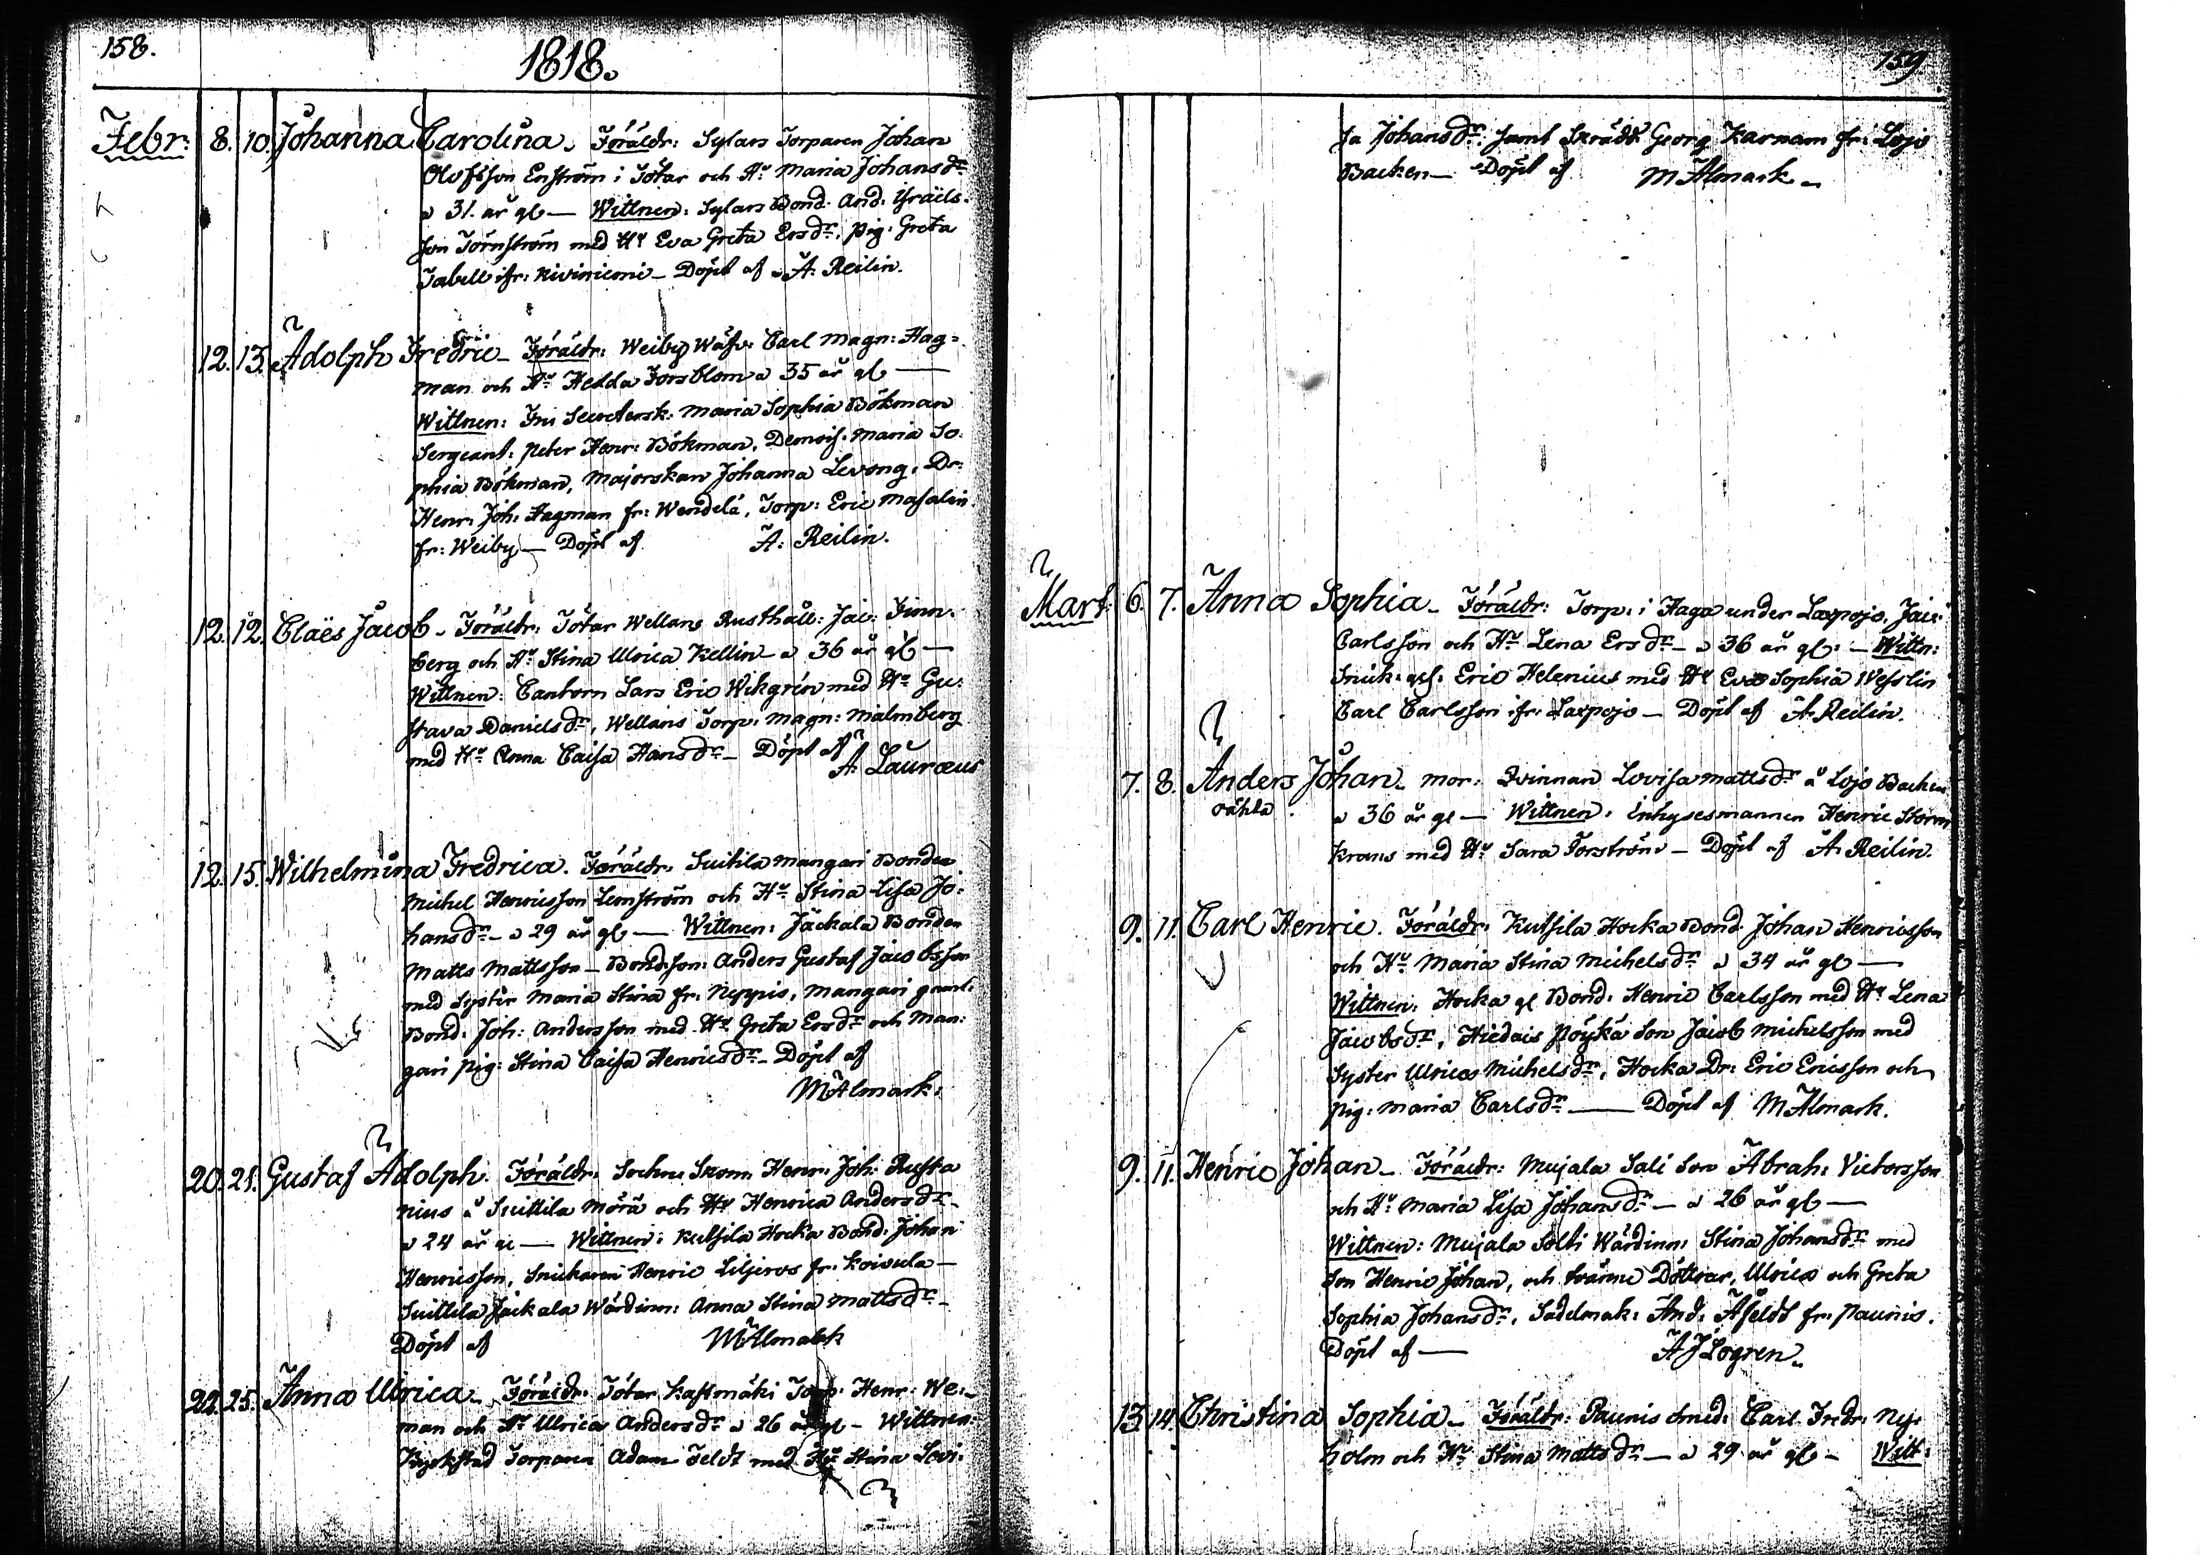 158.
1818.
Febr: 8. 10. Johanna Carolina. Föräldr: Sylars Torparen Johan
Olofsson Enström i Tötar och Hu Maria Johansdr
a 31. år gl — Wittnen: Sylars Bond. And: Israels-
son Törnström med Hu Eva Greta Ersdr, pig: Greta
Tabell ifr: Kiviniemi — Döpt af A: Reilin.
12. 13. Adolph Fredric — Föräldr: Weiby Wäfv: Carl Magn: Hag=
man och Hu Hedda Forsblom a 35 år gl —
Wittnen: Fru Secretersk: Maria Sophia Bökman
Sergeant: Peter Henr: Bökman, Demois: Maria So-
phia Bökman, Majorskan Johanna Levong, Dr:
Henr: Joh: Hagman fr: Wendelä, Torp: Eric Masalin
fr: Weiby — Döpt af A: Reilin.
12. 12. Claës Jacob — Föräldr: Tötar Wellans Rusthåll: Jac: Finn-
berg och Hu Stina Ulrica Kellin — a 36 år gl —
Wittnen: Cantorn Lars Eric Wikgrén med Hu Gu-
stava Danielsdr, Wellans Torp: Magn: Malmberg
med Hu Anna Caisa Hansdr — Döpt af
A: Lauræus
12. 15. Wilhelmina Fredrica. Föräldr: Suitila Mangari Bonden
Michel Henricsson Lemström och Hu Stina Lisa Jo-
hansdr — a 29 år gl — Wittnen: Jäckala Bonden
Matts Mattsson — Bondeson: Anders Gustaf Jacobsson
med Syster Maria Stina fr: Neppis, Mangari gaml:
Bond: Joh: Andersson med Hu Greta Ersdr och Man-
gari pig: Stina Caisa Henricsdr — Döpt af
M Almark:
20. 21. Gustaf Adolph. Föräldr: Sochne Skom: Henr: Joh: Rusta
nius å Suittila Mörä och Hu Henrica Andersdr —
a 24 år gl — Wittnen: Kutsila Hocka Bond: Johan
Henricsson, Snickaren Henric Liljeros fr: Koivula —
Suittila Jäckala Wärdinn: Anna Stina Mattsdr —
Döpt af M Almark
22. 25. Anna Ulrica — Föräldr: Tötar Kastmäki Torp: Henr: We-
man och Hu Ulrica Andersdr a 26 år gl — Wittnen:
Kyrkstad Torparen Adam Feldt med Hu Stina Lovi-
159
sa Johansdr. samt Skrädd: Georg Karnam fr: Lojo
Backen — Döpt af M Almark —
Mart: 6. 7. Anna Sophia — Föräldr: Torp: i Haga under Laxpojo, Jac:
Carlsson och Hu Lena Ersdr — a 36 år gl: — Wittn:
Snick: ges: Eric Helenius med Hu Eva Sophia Wesslin
Carl Carlsson ifr: Laxpojo — Döpt af A: Reilin.
7. 8. Anders Johan — Mor: Qvinnan Lovisa Mattsdr å Lojo Backen
oäkta a 36 år gl — Wittnen: Inhysesmannen Henric Storm
krans med Hu Sara Forström — Döpt af A: Reilin.
9. 11. Carl Henric. Föräldr: Kutsila Hocka Bond: Johan Henricsson
och Hu Maria Stina Michelsdr a 34 år gl —
Wittnen: Hocka gl Bond: Henric Carlsson med Hu Lena
Jacobsdr, Hiedais Pöykä Son Jacob Michelsson med
Syster Ulrica Michelsdr, Hocka Dr: Eric Ericsson och
pig: Maria Carlsdr — Döpt af M Almark.
9. 11. Henric Johan — Föräldr: Mujala Sali Son Abrah: Victorsson
och Hu Maria Lisa Johansdr — a 26 år gl —
Wittnen: Mujala Solti Wärdinn: Stina Johansdr med
Son Henric Johan, och Döttrar, Ulrica och Greta
Sophia Johansdr, Sadelmak: And: Afeldt fr: Paunis.
Döpt af — A J Logren.
13. 14. Christina Sophia — Föräldr: Paunis smed: Carl Fredr: Ny-
holm och Hu Stina Mattsdr — a 29 år gl — Witt: